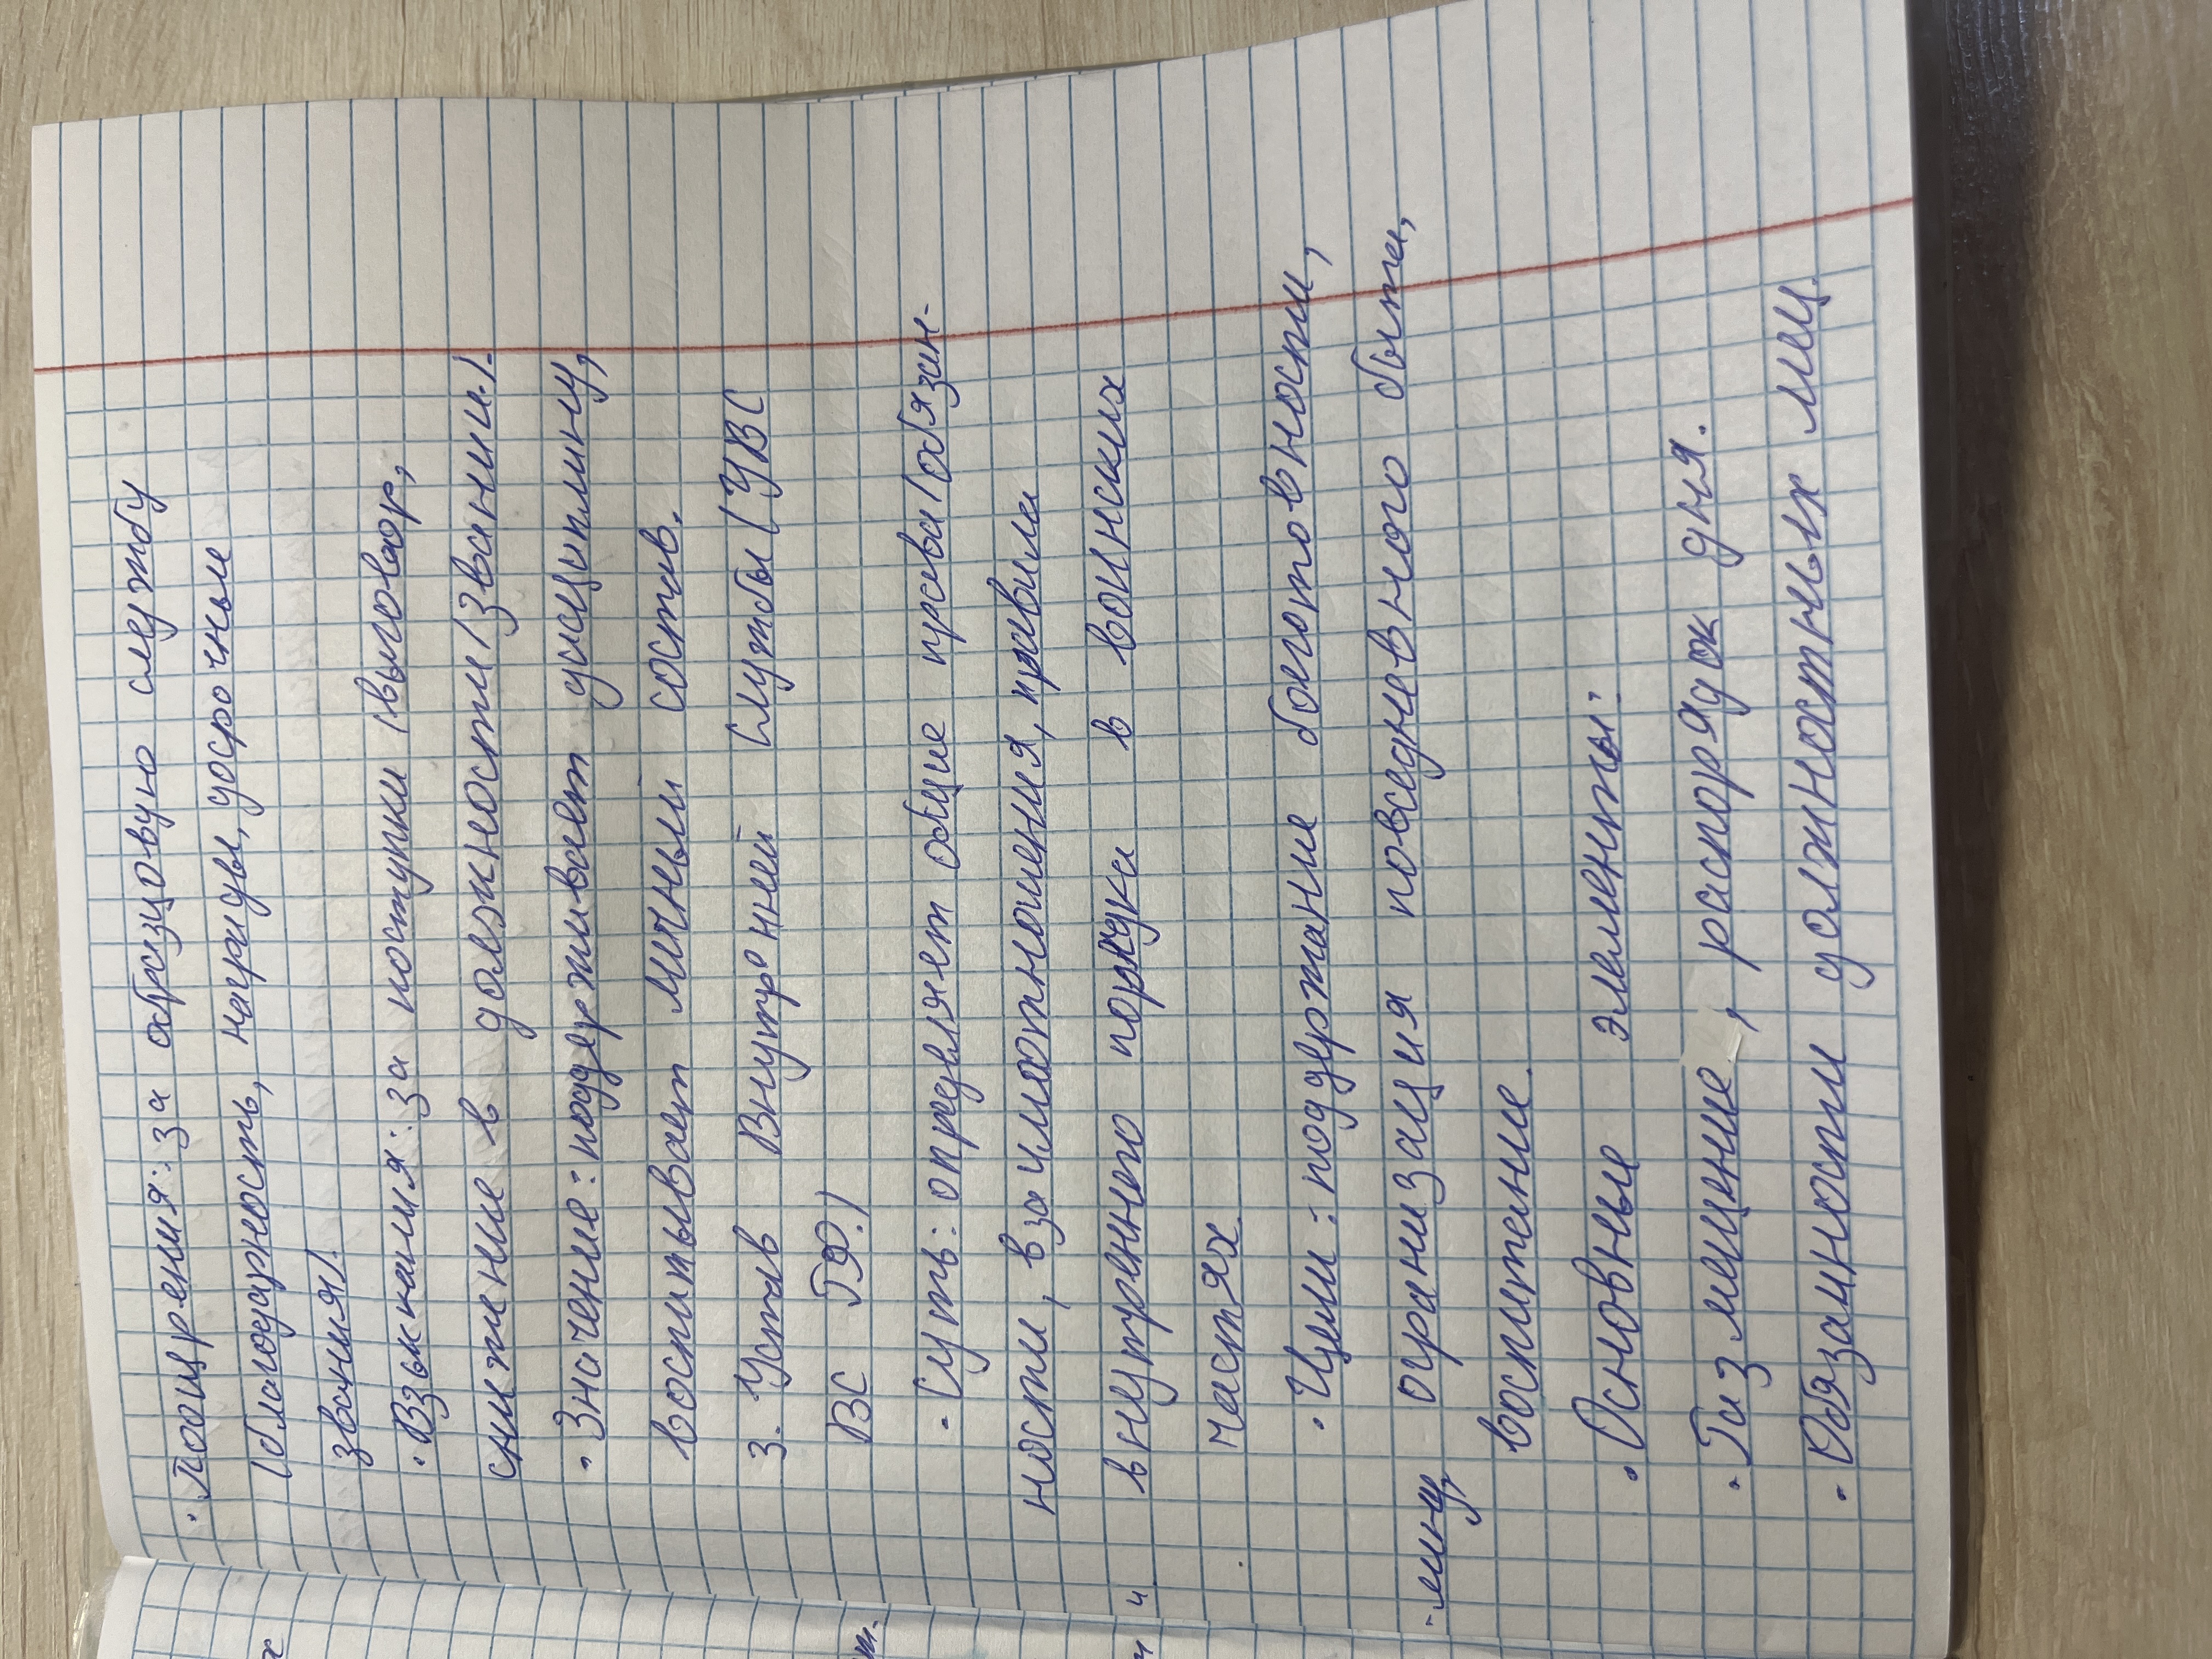 · Поощрения: за образцовую службу
(благодарность, награды, досрочные
звания).
· Взыскания: за поступки (выговор,
снижение в должности/звании).
· Значение: поддерживает дисциплину,
воспитывает личный состав.
3. Устав Внутренней Службы (УВС
ВС РФ)
· Суть: определяет общие права/обязан-
ности, взаимоотношения, правила
внутреннего порядка в воинских
частях
· Цели: поддержание боеготовности,
организация повседневного быта,
воспитение.
· Основные элементы:
· Размещение, распорядок дня.
· Обязанности должностных лиц.
-лину,